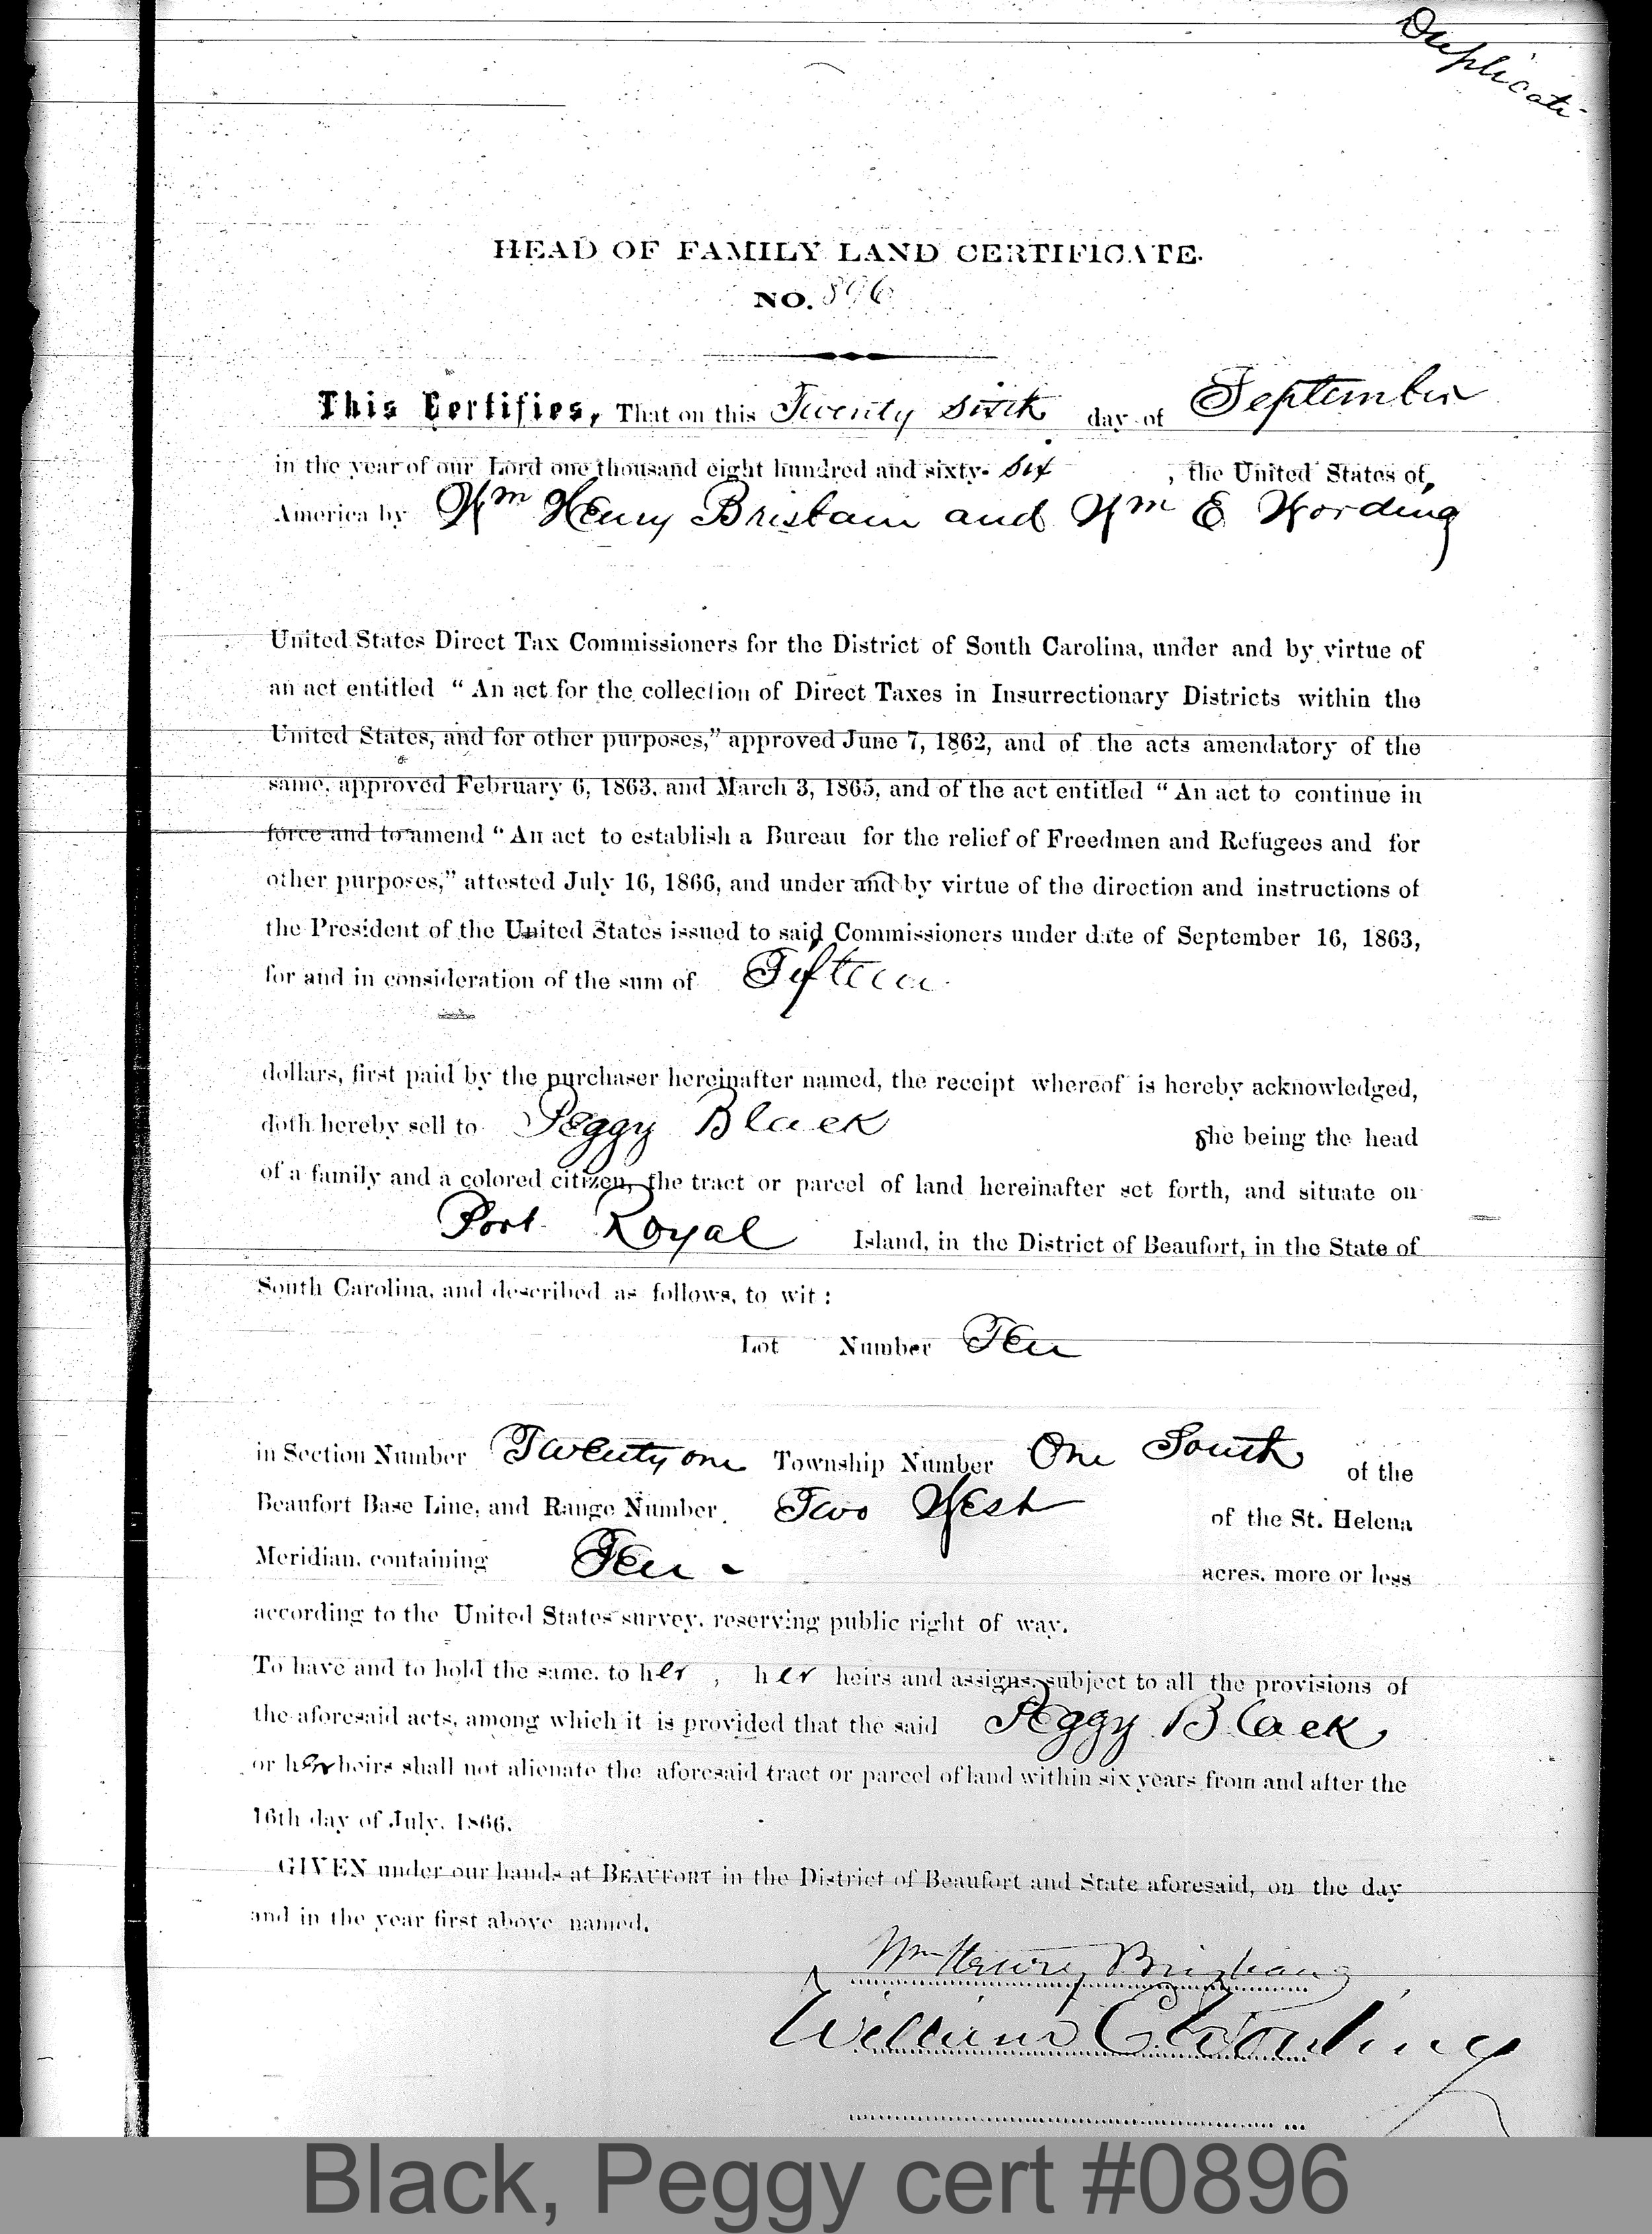 Duplicate
HEAD OF FAMILY LAND CERTIFICATE.
NO. 896
This Certifies, That on this Twenty Sixth day of September
in the year of our Lord one thousand eight hundred and sixty-six, the United States of
America by Wm Henry Brisbain and Wm E Wording
United States Direct Tax Commissioners for the District of South Carolina, under and by virtue of
an act entitled “An act for the collection of Direct Taxes in Insurrectionary Districts within the
United States, and for other purposes,” approved June 7, 1862, and of the acts amendatory of the
same, approved February 6, 1863, and March 3, 1865, and of the act entitled “An act to continue in
force and to amend “An act to establish a Bureau for the relief of Freedmen and Refugees and for
other purposes,” attested July 16, 1866, and under and by virtue of the direction and instructions of
the President of the United States issued to said Commissioners under date of September 16, 1863,
for and in consideration of the sum of Fifteen
dollars, first paid by the purchaser hereinafter named, the receipt whereof is hereby acknowledged,
doth hereby sell to Peggy Black She being the head
of a family and a colored citizen, the tract or parcel of land hereinafter set forth, and situate on
Port Royal Island, in the District of Beaufort, in the State of
South Carolina, and described as follows, to wit:
Lot Number Ten
in Section Number Twenty one Township Number One South of the
Beaufort Base Line, and Range Number Two West of the St. Helena
Meridian, containing Ten - acres, more or less
according to the United States survey, reserving public right of way.
To have and to hold the same, to her, her heirs and assigns, subject to all the provisions of
the aforesaid acts, among which it is provided that the said Peggy Black
or her heirs shall not alienate the aforesaid tract or parcel of land within six years from and after the
16th day of July, 1866.
GIVEN under our hands at BEAUFORT in the District of Beaufort and State aforesaid, on the day
and in the year first above named.
Wm Henry Brisbane
William E Wording
Black, Peggy cert #0896